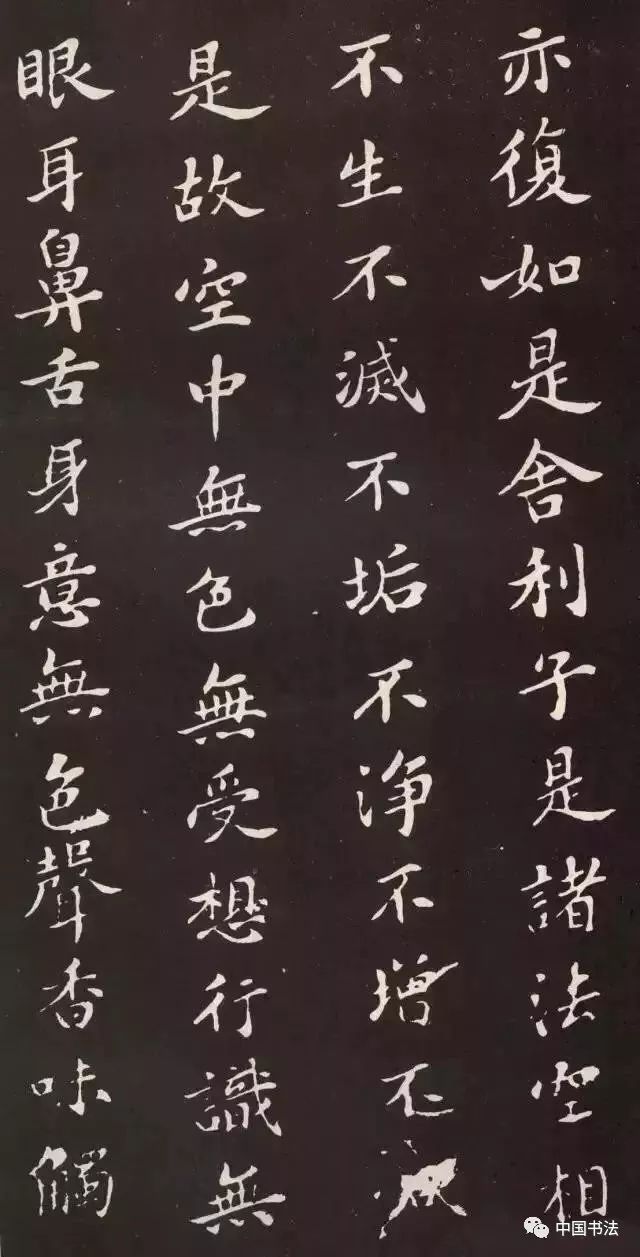 亦復如是舍利子是諸法空相
不生不滅不垢不浄不增不減
是故空中無色無受想行識無
眼耳鼻舌身意無色聲香味觸
中国书法